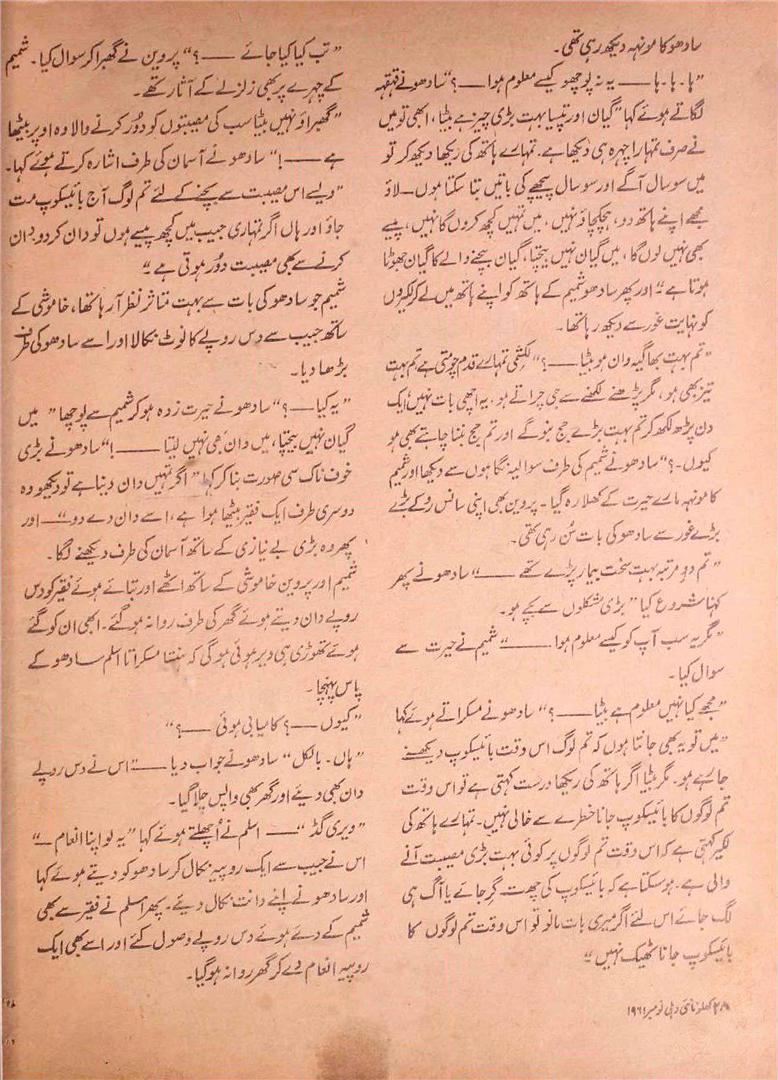 سادھو کا مونہہ دیکھ رہی تھی۔
”ہا۔ہا۔ہا —— یہ نہ پوچھو کیسے معلوم ہوا —— ؟“ سادھو نے قہقہہ
لگاتے ہوئے کہا ”گیان اور تپسیا بہت بڑی چیز ہے بیٹا، ابھی تو میں
نے صرف تمہارا چہرہ ہی دیکھا ہے۔ تمہارے ہاتھ کی ریکھا دیکھ کر تو
میں سو سال آگے اور سو سال پیچھے کی باتیں بتا سکتا ہوں — لاؤ
مجھے اپنے ہاتھ دو، ہچکچاؤ نہیں، میں تمہیں کچھ کروں گا نہیں، پیسے
بھی نہیں لوں گا، میں گیان نہیں بیچتا، گیان بیچنے والے کا گیان جھوٹا
ہوتا ہے“ اور پھر سادھو شمیم کے ہاتھ کو اپنے ہاتھ میں لے کر لکیروں
کو نہایت غور سے دیکھ رہا تھا۔
”تم بہت بھاگیہ وان ہو بیٹا —— ؟“ لکشمی تمہارے قدم چومتی ہے تم بہت
تیز بھی ہو، مگر پڑھنے لکھنے سے جی چراتے ہو، یہ اچھی بات نہیں ایک
دن پڑھ لکھ کر تم بہت بڑے جج بنو گے اور تم جج بننا چاہتے بھی ہو
کیوں۔؟“ سادھو نے شمیم کی طرف سوالیہ نگاہوں سے دیکھا اور شمیم
کا مونہہ مارے حیرت کے کھلا رہ گیا۔ پروین بھی اپنی سانس روکے بڑے
بڑے غور سے سادھو کی بات سُن رہی تھی۔
”تم دو مرتبہ بہت سخت بیمار پڑے تھے ——“ سادھو نے پھر
کہنا شروع کیا ”بڑی مشکلوں سے بچے ہو۔
”مگر یہ سب آپ کو کیسے معلوم ہوا ——“ شمیم نے حیرت سے
سوال کیا۔
”مجھے کیا نہیں معلوم ہے بیٹا —— ؟“ سادھو نے مسکراتے ہوئے کہا
”میں تو یہ بھی جانتا ہوں کہ تم لوگ اس وقت بائیسکوپ دیکھنے
جا رہے ہو۔ مگر بیٹا اگر ہاتھ کی ریکھا درست کہتی ہے تو اس وقت
تم لوگوں کا بائیسکوپ جانا خطرے سے خالی نہیں۔ تمہارے ہاتھ کی
لکیر کہتی ہے کہ اس وقت تم لوگوں پر کوئی بہت بڑی مصیبت آنے
والی ہے۔ ہو سکتا ہے کہ بائیسکوپ کی چھت گر جائے یا آگ ہی
لگ جائے اس لئے اگر میری بات مانو تو اس وقت تم لوگوں کا
بائیسکوپ جانا ٹھیک نہیں“
”تب کیا کیا جائے —— ؟“ پروین نے گھبرا کر سوال کیا۔ شمیم
کے چہرے پر بھی زلزلے کے آثار تھے۔
”گھبراؤ نہیں بیٹا سب کی مصیبتوں کو دُور کرنے والا وہ اوپر بیٹھا
ہے —— !“ سادھو نے آسمان کی طرف اشارہ کرتے ہوئے کہا۔
”ویسے اس مصیبت سے بچنے کے لئے تم لوگ آج بائیسکوپ مت
جاؤ اور ہاں اگر تمہاری جیب میں کچھ پیسے ہوں تو دان کر دو۔ دان
کرنے سے بھی مصیبت دُور ہوتی ہے“
شمیم جو سادھو کی بات سے بہت متاثر نظر آ رہا تھا، خاموشی کے
ساتھ جیب سے دس روپے کا نوٹ نکالا اور اسے سادھو کی طرف
بڑھا دیا۔
”یہ کیا —— ؟“ سادھو نے حیرت زدہ ہو کر شمیم سے پوچھا ”میں
گیان نہیں بیچتا، میں دان بھی نہیں لیتا —— !“ سادھو نے بڑی
خوف ناک سی صورت بنا کر کہا ”اگر تمہیں دان دینا ہے تو دیکھو وہ
دوسری طرف ایک فقیر بیٹھا ہوا ہے، اسے دان دے دو“ — اور
پھر وہ بڑی بے نیازی کے ساتھ آسمان کی طرف دیکھنے لگا۔
شمیم اور پروین خاموشی کے ساتھ اٹھے اور بتائے ہوئے فقیر کو دس
روپے دان دیتے ہوئے گھر کی طرف روانہ ہو گئے۔ ابھی ان کو گئے
ہوئے تھوڑی ہی دیر ہوئی ہو گی کہ ہنستا مسکراتا اسلم سادھو کے
پاس پہنچا۔
”کیوں —— ؟ کامیابی ہوئی —— ؟“
”ہاں۔ بالکل“ سادھو نے جواب دیا —— ”اس نے دس روپے
دان بھی دیئے اور گھر بھی واپس چلا گیا۔
”ویری گڈ“ —— اسلم نے اُچھلتے ہوئے کہا ”یہ لو اپنا انعام —“
اس نے جیب سے ایک روپیہ نکال کر سادھو کو دیتے ہوئے کہا
اور سادھو نے اپنے دانت نکال دیئے۔ پھر اسلم نے فقیر سے بھی
شمیم کے دیئے ہوئے دس روپے وصول کئے اور اسے بھی ایک
روپیہ انعام دے کر گھر روانہ ہو گیا۔
کھلونا نئی دہلی نومبر ۱۹۶۱ء